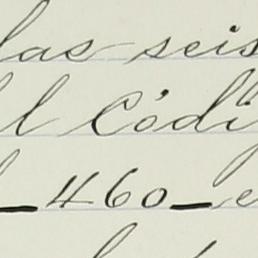 las seis
l Códi
460